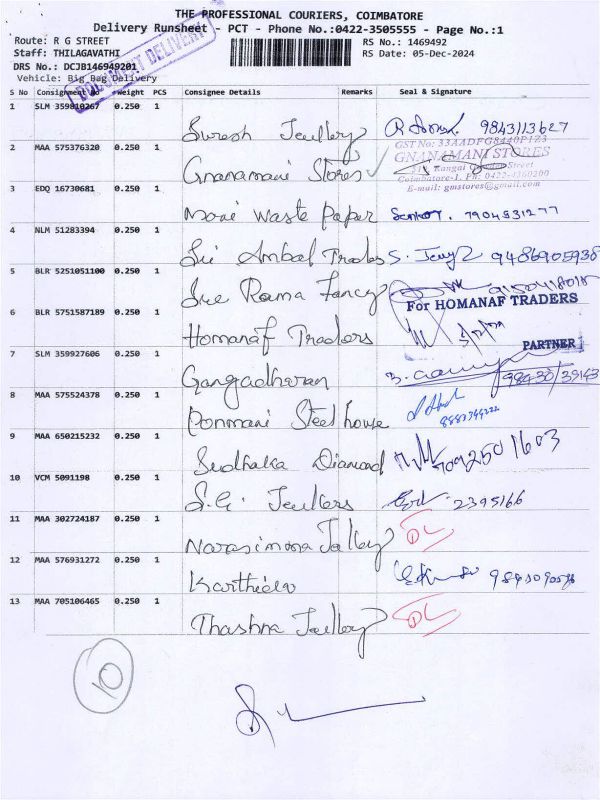 THE PROFESSIONAL COURIERS, COIMBATORE
Delivery Runsheet - PCT - Phone No.:0422-3505555 - Page No.:1
Route: R G STREET
RS No.: 1469492
Staff: THILAGAVATHI
RS Date: 05-Dec-2024
DRS No.: DCJB146949201
Vehicle: Big Bag Delivery
DOCUMENT DELIVERY
S No Consignment No Weight PCS Consignee Details Remarks Seal & Signature
1 SLM 359810267 0.250 1
Suresh Jewllery 9843113627
2 MAA 575376320 0.250 1
GST No: 33AADFG8440P1Z3
GNANAMANI STORES
Gnanamani Stores
Street
Coimbatore-1. Ph: 0422-4360200
E-mail: gmstores@gmail.com
3 EDQ 16730681 0.250 1
Mani Waste Paper 7904531277
4 NLM 51283394 0.250 1
Sri Ambal Traders S. 9486905938
5 BLR 5251051100 0.250 1
Sree Rama Fancy
6 BLR 5751587189 0.250 1
For HOMANAF TRADERS
Homanaf Traders
PARTNER
7 SLM 359927606 0.250 1
Gangadharan 98430/39143
8 MAA 575524378 0.250 1
Ponmani Steel house
9 MAA 650215232 0.250 1
Sudhaka Diamond 7092501603
10 VCM 5091198 0.250 1
S.G. Jewllers 2395166
11 MAA 302724187 0.250 1
Narasimma Jalley DL
12 MAA 576931272 0.250 1
Karthick
13 MAA 705106465 0.250 1
Thashna Jewllery DL
10